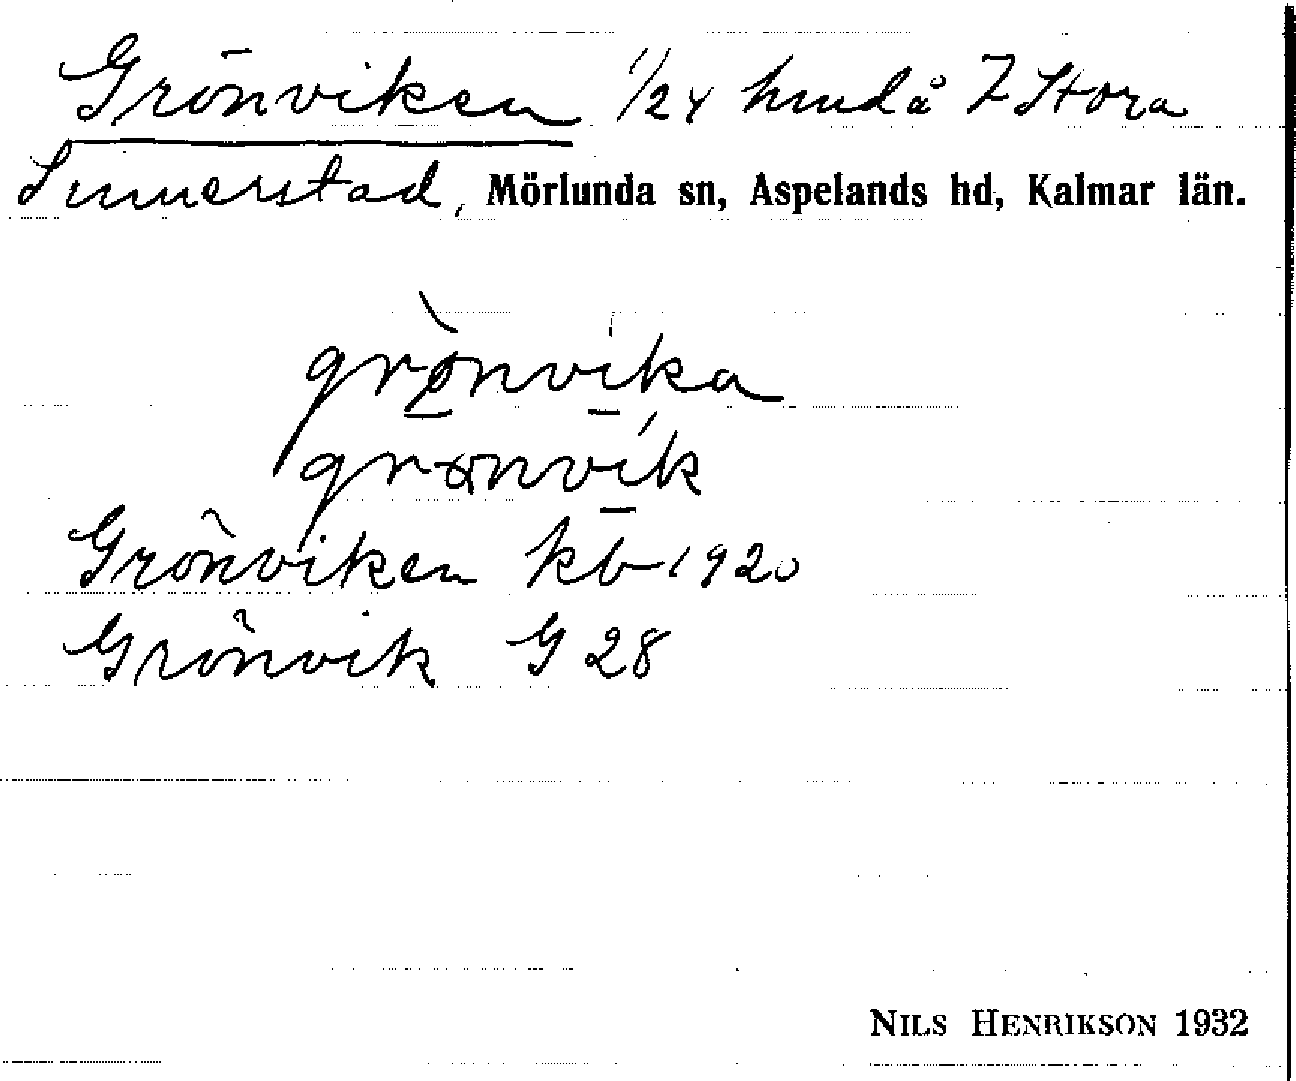 Grönviken 1/24 hmd å 7 Stora
Sinnerstad, Mörlunda sn, Aspelands hd, Kalmar län.
grönvika
grönvik
Grönviken kb 1920
Grönvik G 28
NILS HENRIKSON 1932